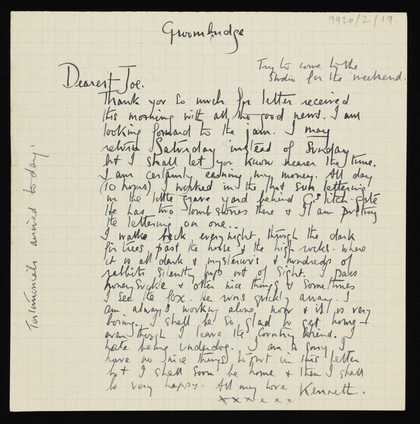 9920/2/19.
Groombridge
Try to come to the
Studio for the weekend.
Dearest Joe.
Thank you so much for letter received
this morning with all the good news. I am
looking forward to the jam. I may
return Saturday instead of Sunday
but I shall let you know nearer the time.
I am certainly earning my money. All day
10 hours) I worked in the hot sun lettering
in the little grave yard behind G's litch-gate
He has two tomb stones there & I am putting
the lettering on one..
I walke back every night, through the dark
fir trees, past the horse & the high rocks. where
it is all dark & mysterious & hundreds of
rabbits silently pop out of sight. I pass
honeysuckle & other nice things & sometimes
I see the fox. he runs quickly away. I
am always working alone, now & it is very
boring. I shall be so glad to get home -
even though I leave the country behind. I
hate being underdog. I am so sorry I
have no nice things to put in this letter
but I shall soon be home & then I shall
be very happy. All my love Kenneth.
xxxxxx
Testimonials arrived today.